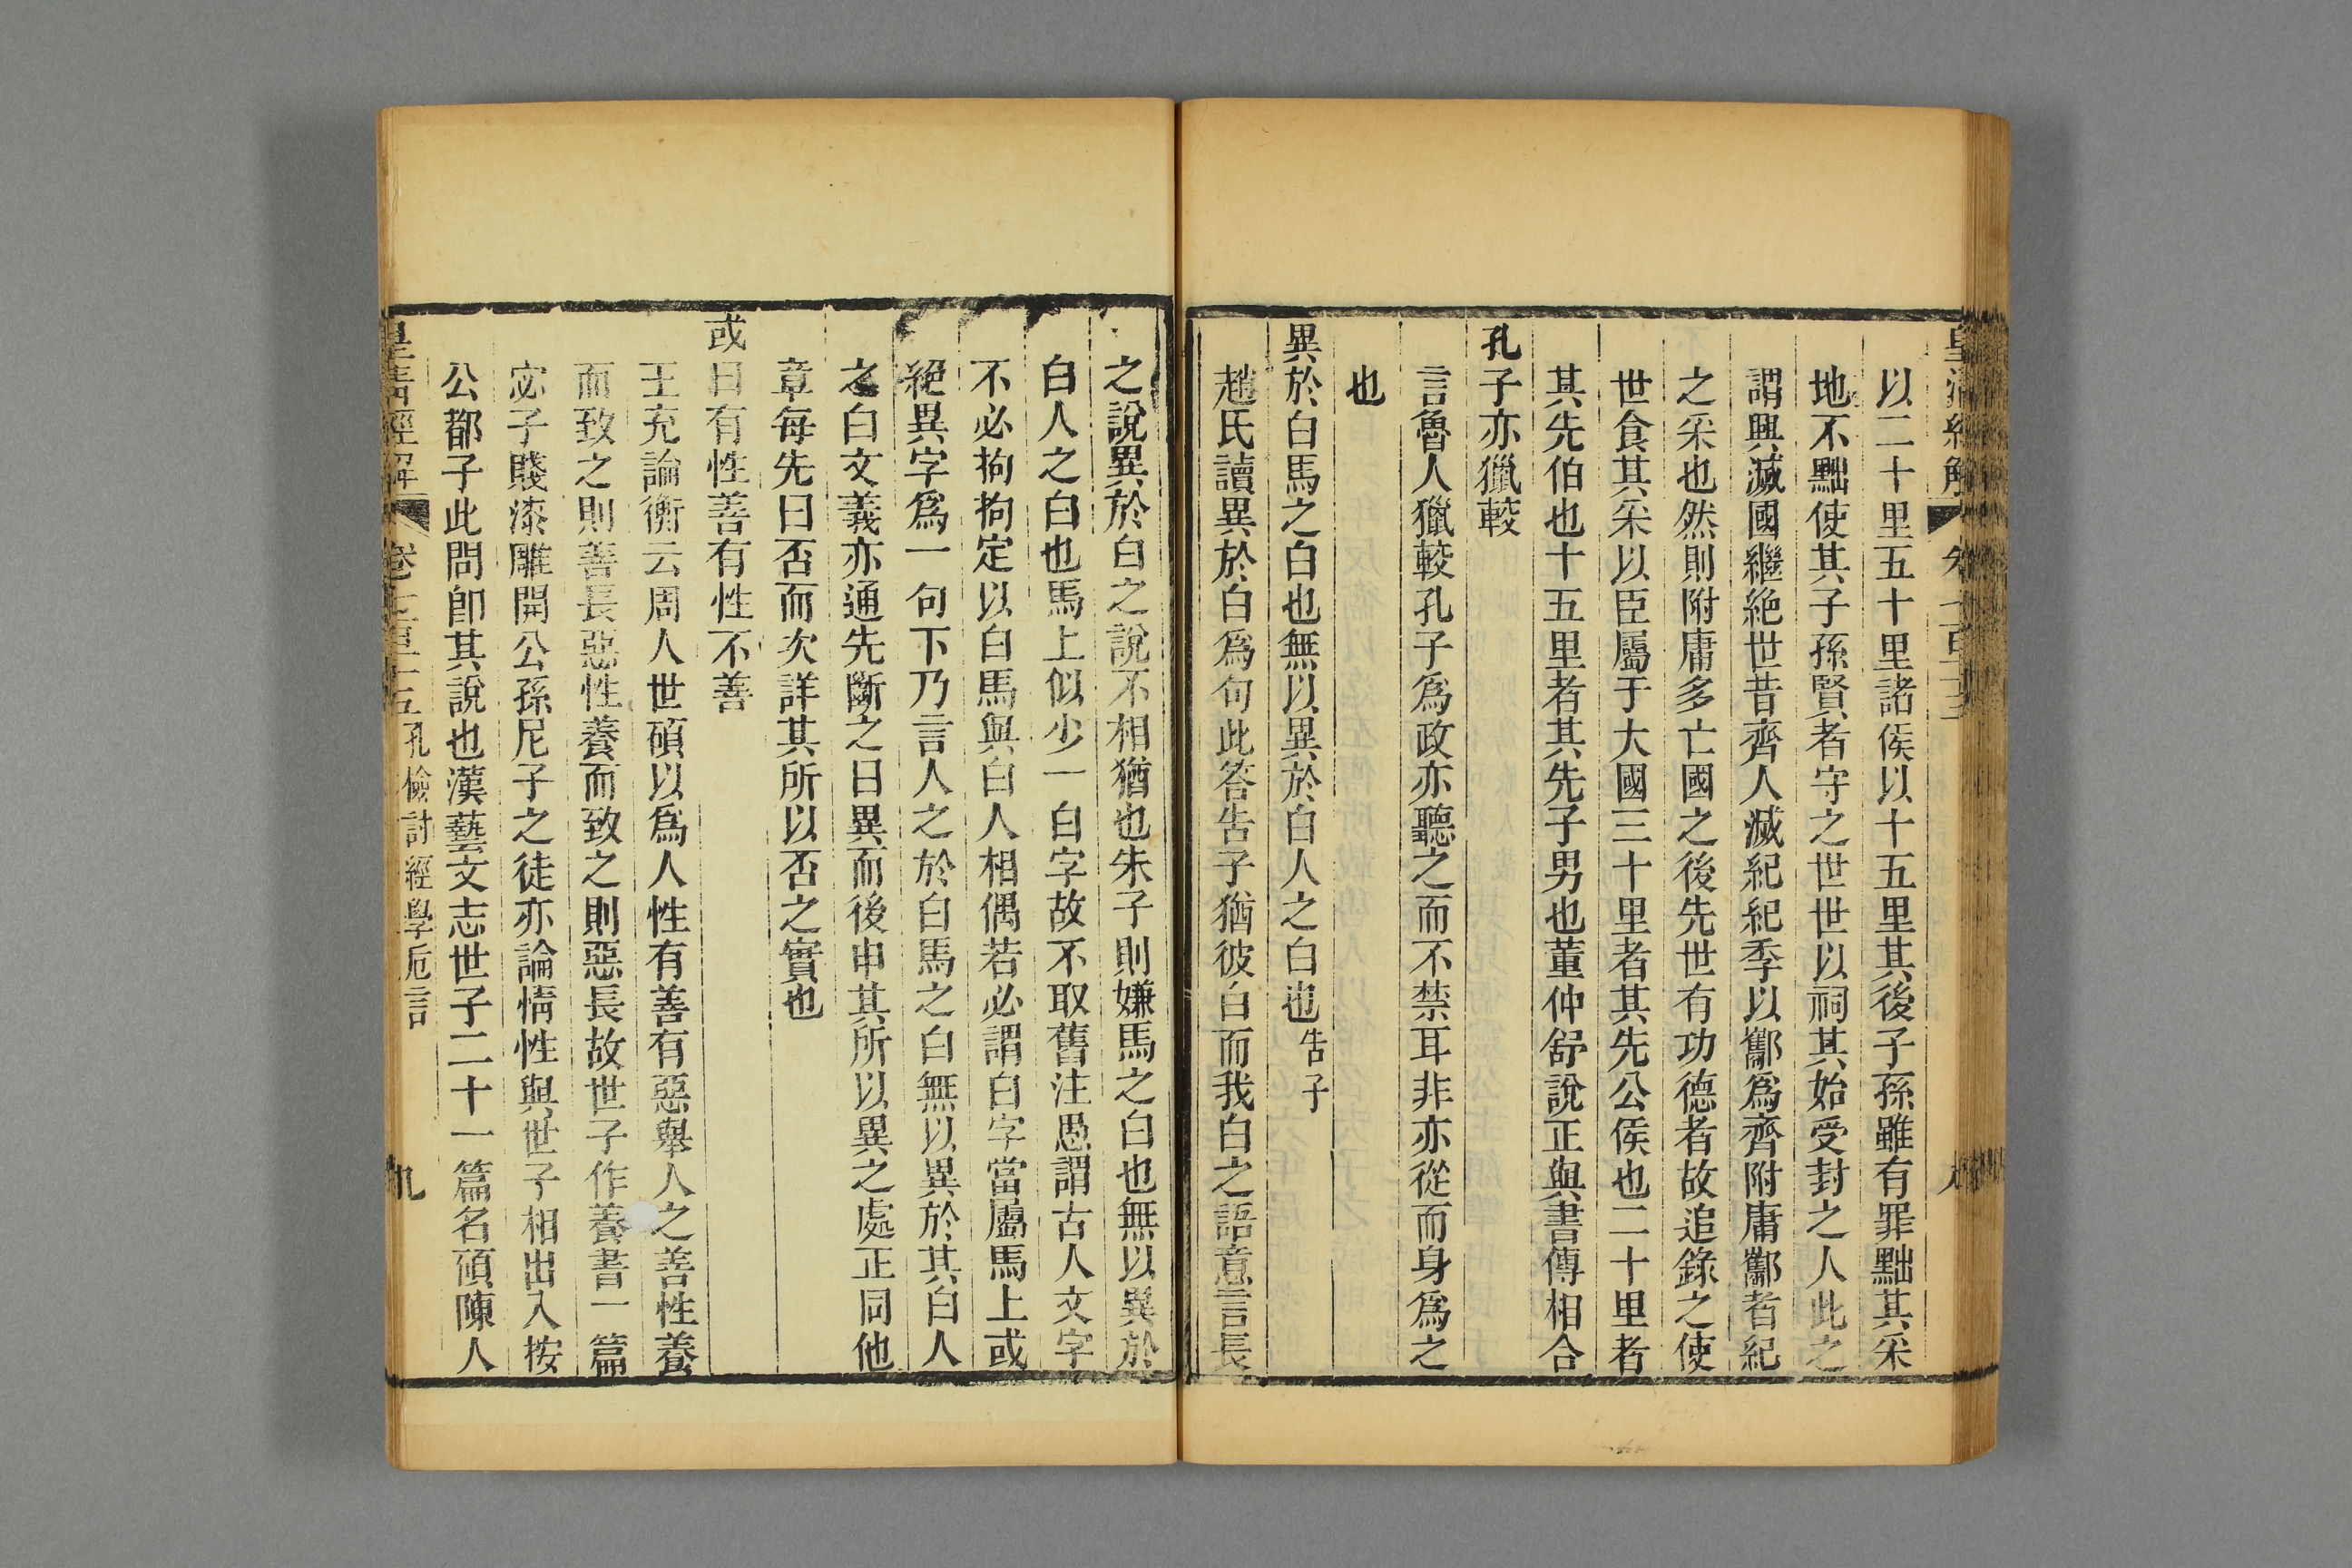 以二十里五十里諸侯以十五里其後子孫雖有罪黜其采
地不黜使其子孫賢者守之世世以祠其始受封之人此之
謂興滅國繼絕世昔齊人滅紀紀季以酅爲齊附庸酅者紀
之采也然則附庸多亡國之後先世有功德者故追錄之使
世食其采以臣屬于大國三十里者其先公侯也二十里者
其先伯也十五里者其先子男也董仲舒說正與書傳相合
孔子亦獵較
言魯人獵較孔子爲政亦聽之而不禁耳非亦從而身爲之
也
異於白馬之白也無以異於白人之白也告子
趙氏讀異於白爲句此答告子猶彼白而我白之語意言長
之說異於白之說不相猶也朱子則嫌馬之白也無以異於
白人之白也馬上似少一白字故不取舊注愚謂古人文字
不必拘拘定以白馬與白人相偶若必謂白字當屬馬上或
絕異字爲一句下乃言人之於白馬之白無以異於其白人
之白文義亦通先斷之曰異而後申其所以異之處正同他
章每先曰否而次詳其所以否之實也
或曰有性善有性不善
王充論衡云周人世碩以爲人性有善有惡舉人之善性養
而致之則善長惡性養而致之則惡長故世子作養書一篇
宓子賤漆雕開公孫尼子之徒亦論情性與世子相出入按
公都子此問卽其說也漢藝文志世子二十一篇名碩陳人
皇清經解 卷七百十五 孔檢討經學卮言 九